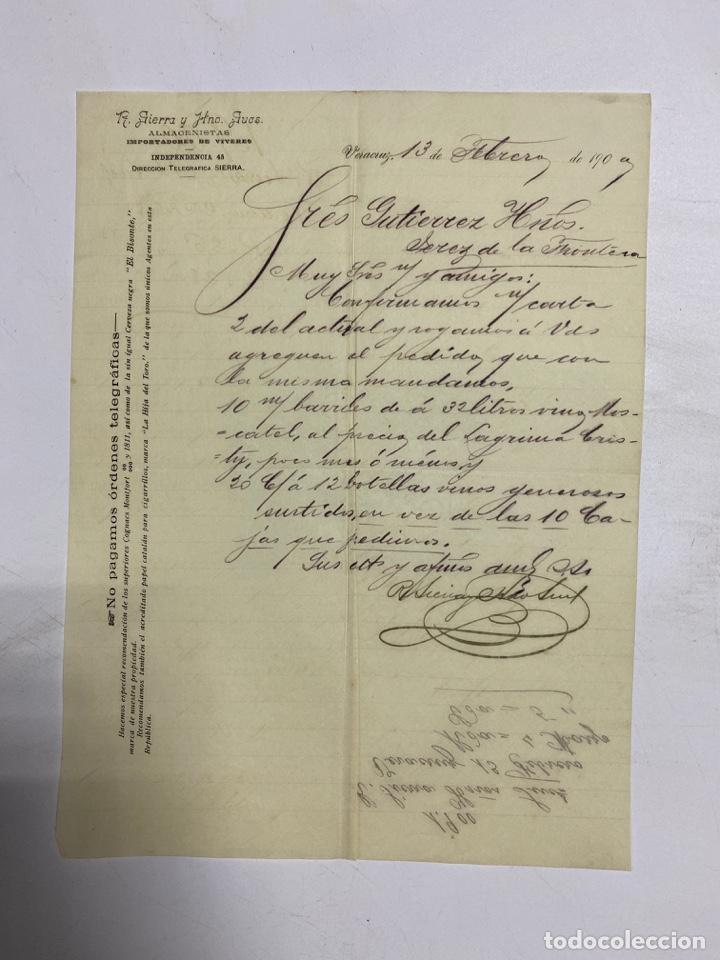 R. Sierra y Hno. Sucs.
ALMACENISTAS
IMPORTADORES DE VIVERES
INDEPENDENCIA 45
DIRECCION TELEGRAFICA SIERRA.
Veracruz, 13 de Febrero de 190
Srés Gutierrez Hños.
Jerez de la Frontera
Muy Srés n/ y amigos:
Confirmamos n/ carta
2 del actual y rogamos á Vds
agreguen al pedido, que con
la misma mandamos,
10 m/ barriles de á 32 litros vino Mos-
=catel, al precio del Lagrima Cris-
=ty, poco mas ó ménos, y
20 C/ á 12 botellas vinos generosos
surtidos, en vez de las 10 Ca-
jas que pedimos.
Sus att y afmos
R Sierra y Hno Suc
No pagamos órdenes telegráficas
Hacemos especial recomendación de los superiores Cognacs Montfort y 1811, así como de la sin igual Cerveza negra "El Bisonte,"
marca de nuestra propiedad.
Recomendamos también el acreditado papel catalán para cigarrillos, marca "La Hija del Toro," de la que somos únicos Agentes en esta
República.
1.900
R. Sierra Hno Suc
Veracruz 13 Febrero
= 4 Marzo
= 5 "
todocoleccion
todocoleccion.net